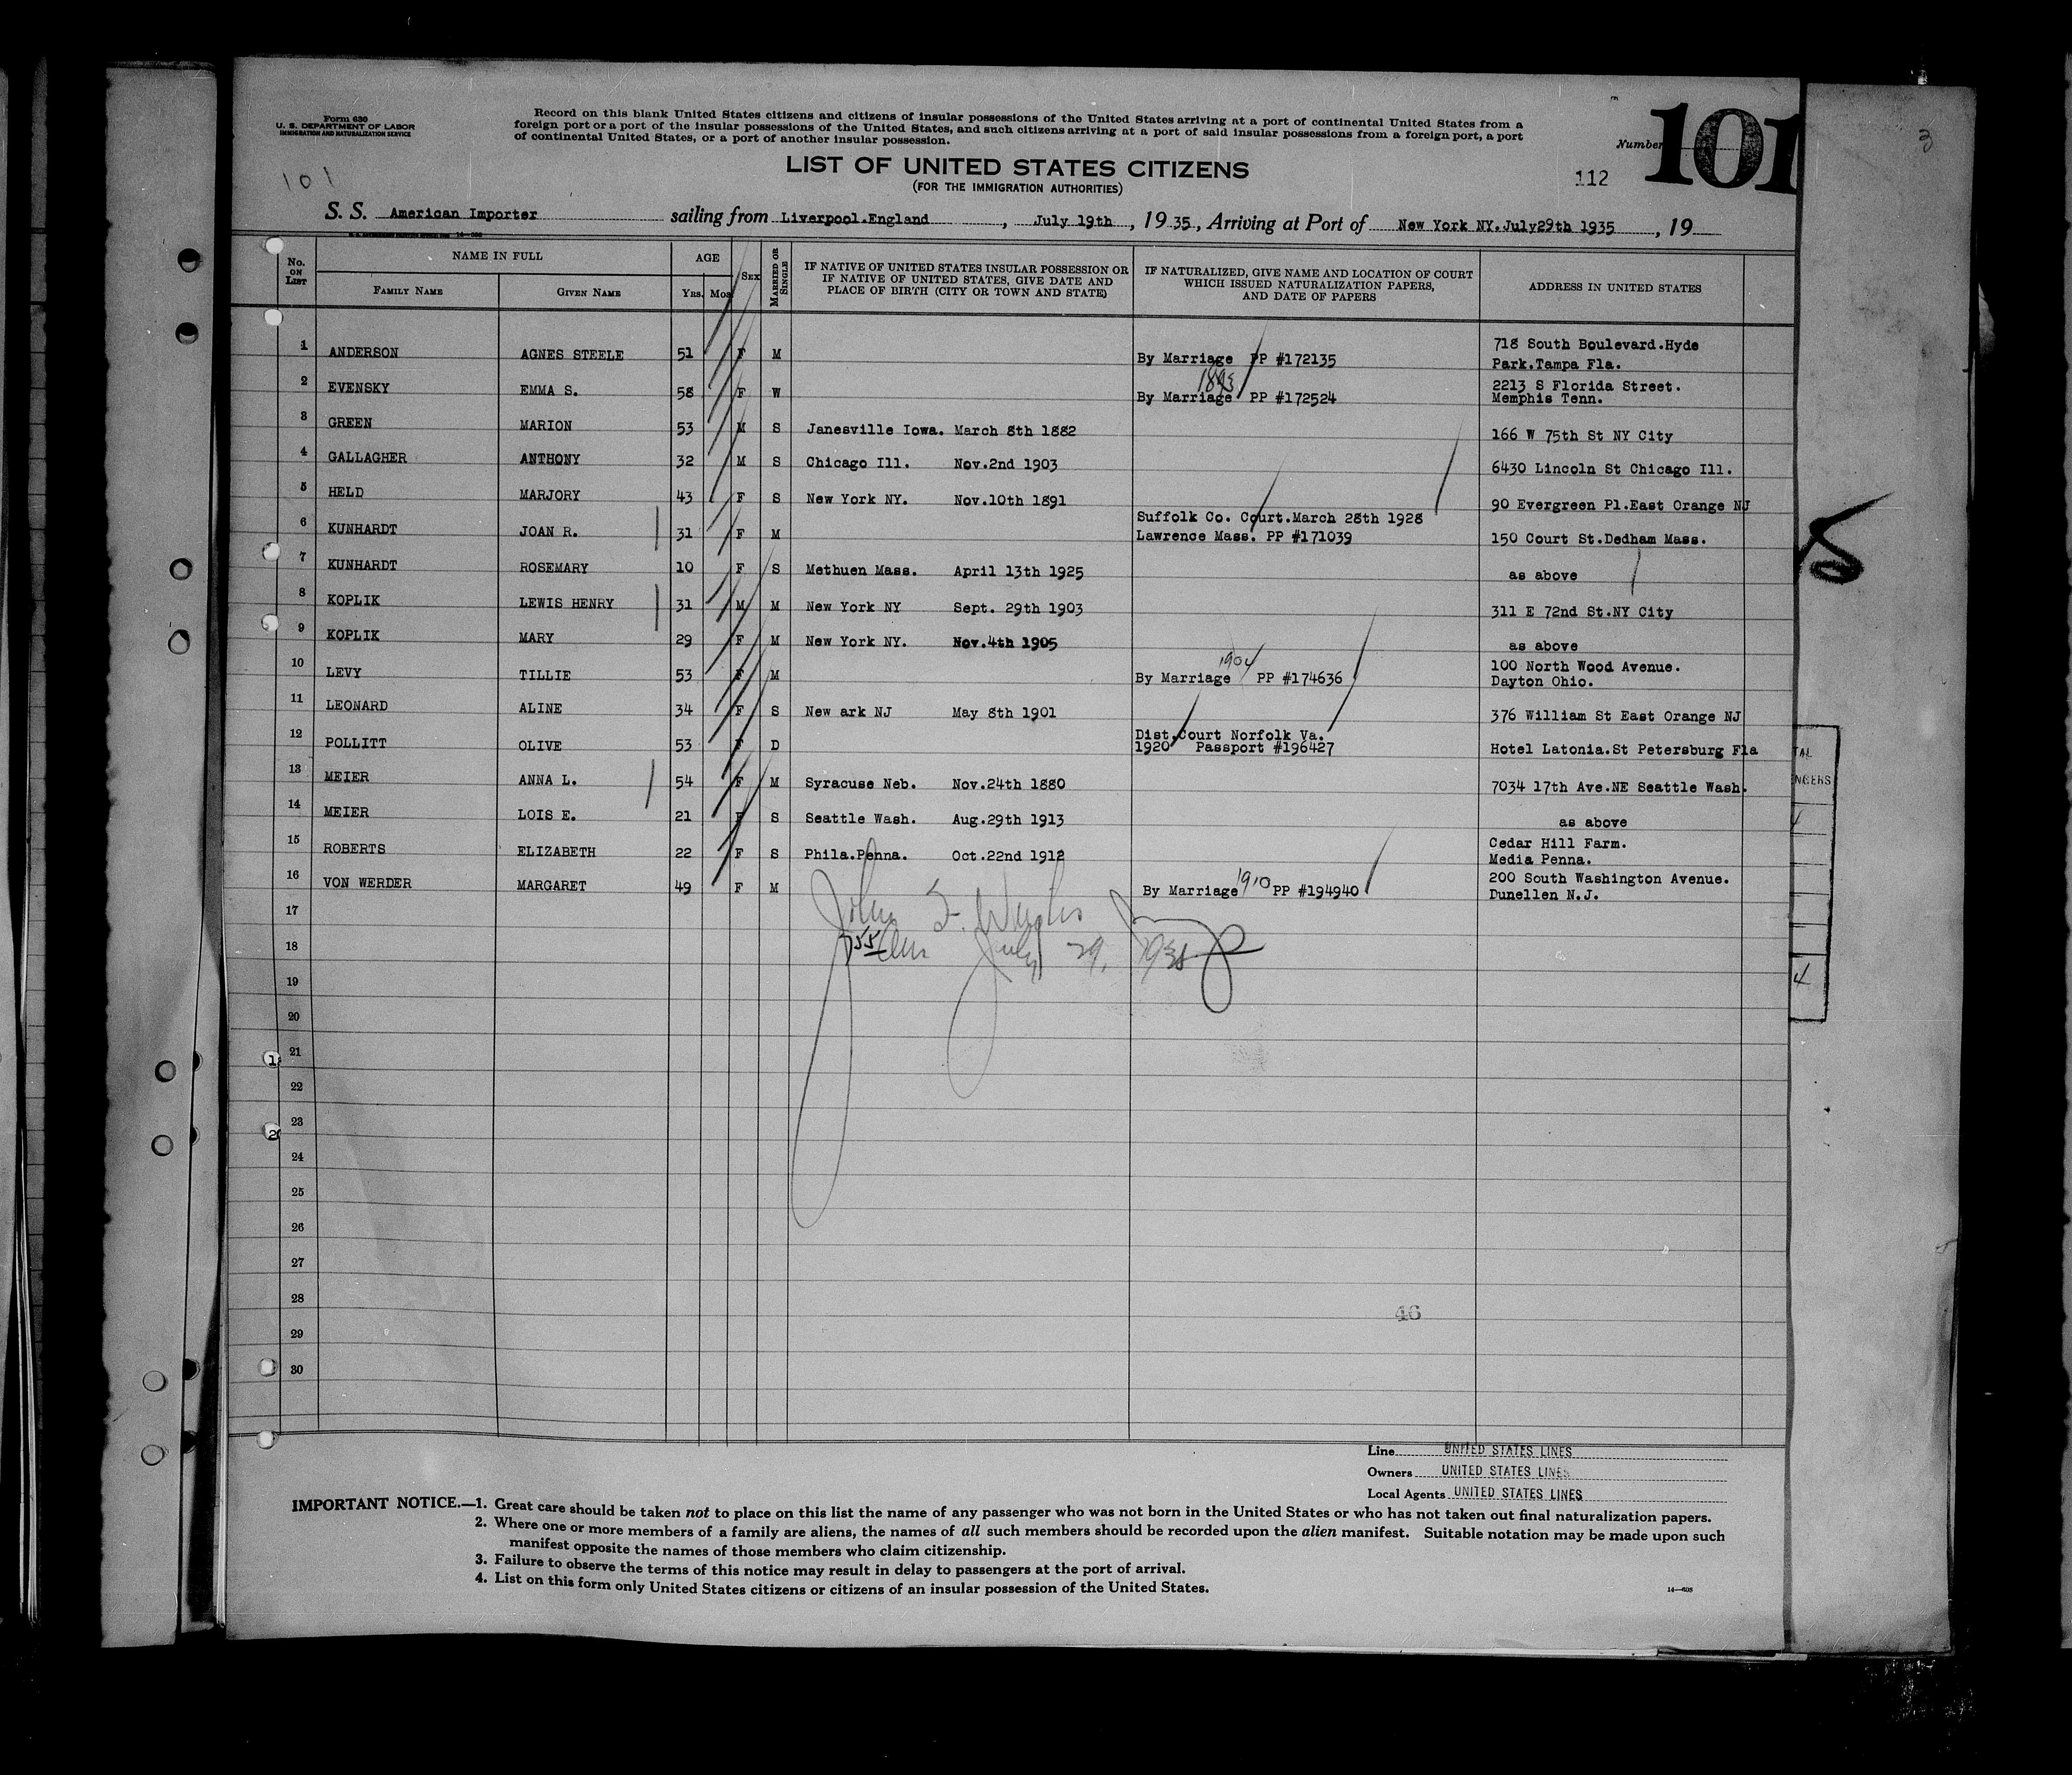 Form 630
U. S. DEPARTMENT OF LABOR
IMMIGRATION AND NATURALIZATION SERVICE
Record on this blank United States citizens and citizens of insular possessions of the United States arriving at a port of continental United States from a
foreign port or a port of the insular possessions of the United States, and such citizens arriving at a port of said insular possessions from a foreign port, a port
of continental United States, or a port of another insular possession.
Number 101
3
101
LIST OF UNITED STATES CITIZENS
(FOR THE IMMIGRATION AUTHORITIES)
112
S. S. American Importer sailing from Liverpool.England, July 19th, 1935, Arriving at Port of New York NY.July29th 1935, 19
No. ON LIST
NAME IN FULL
FAMILY NAME GIVEN NAME
AGE
YRS. MOS
SEX
MARRIED OR SINGLE
IF NATIVE OF UNITED STATES INSULAR POSSESSION OR
IF NATIVE OF UNITED STATES, GIVE DATE AND
PLACE OF BIRTH (CITY OR TOWN AND STATE)
IF NATURALIZED, GIVE NAME AND LOCATION OF COURT
WHICH ISSUED NATURALIZATION PAPERS,
AND DATE OF PAPERS
ADDRESS IN UNITED STATES
1 ANDERSON AGNES STEELE 51 F M By Marriage PP #172135 718 South Boulevard.Hyde
Park.Tampa Fla.
2 EVENSKY EMMA S. 58 F W By Marriage 1893 PP #172524 2213 S Florida Street.
Memphis Tenn.
3 GREEN MARION 53 M S Janesville Iowa. March 8th 1882 166 W 75th St NY City
4 GALLAGHER ANTHONY 32 M S Chicago Ill. Nov.2nd 1903 6430 Lincoln St Chicago Ill.
5 HELD MARJORY 43 F S New York NY. Nov.10th 1891 90 Evergreen Pl.East Orange NJ
6 KUNHARDT JOAN R. 31 F M Suffolk Co. Court.March 28th 1928
Lawrence Mass. PP #171039 150 Court St.Dedham Mass.
7 KUNHARDT ROSEMARY 10 F S Methuen Mass. April 13th 1925 as above
8 KOPLIK LEWIS HENRY 31 M M New York NY Sept. 29th 1903 311 E 72nd St.NY City
9 KOPLIK MARY 29 F M New York NY. Nov.4th 1905 as above
10 LEVY TILLIE 53 F M By Marriage 1904 PP #174636 100 North Wood Avenue.
Dayton Ohio.
11 LEONARD ALINE 34 F S New ark NJ May 8th 1901 376 William St East Orange NJ
12 POLLITT OLIVE 53 F D Dist.Court Norfolk Va.
1920 Passport #196427 Hotel Latonia.St Petersburg Fla
13 MEIER ANNA L. 54 F M Syracuse Neb. Nov.24th 1880 7034 17th Ave.NE Seattle Wash.
14 MEIER LOIS E. 21 F S Seattle Wash. Aug.29th 1913 as above
15 ROBERTS ELIZABETH 22 F S Phila.Penna. Oct.22nd 1912 Cedar Hill Farm.
Media Penna.
16 VON WERDER MARGARET 49 F M By Marriage 1910 PP #194940 200 South Washington Avenue.
Dunellen N.J.
17
18
July 29, 1935
19
20
21
22
23
24
25
26
27
28
46
29
30
Line UNITED STATES LINES
Owners UNITED STATES LINES
Local Agents UNITED STATES LINES
IMPORTANT NOTICE.—1. Great care should be taken not to place on this list the name of any passenger who was not born in the United States or who has not taken out final naturalization papers.
2. Where one or more members of a family are aliens, the names of all such members should be recorded upon the alien manifest. Suitable notation may be made upon such
manifest opposite the names of those members who claim citizenship.
3. Failure to observe the terms of this notice may result in delay to passengers at the port of arrival.
4. List on this form only United States citizens or citizens of an insular possession of the United States.
14—608